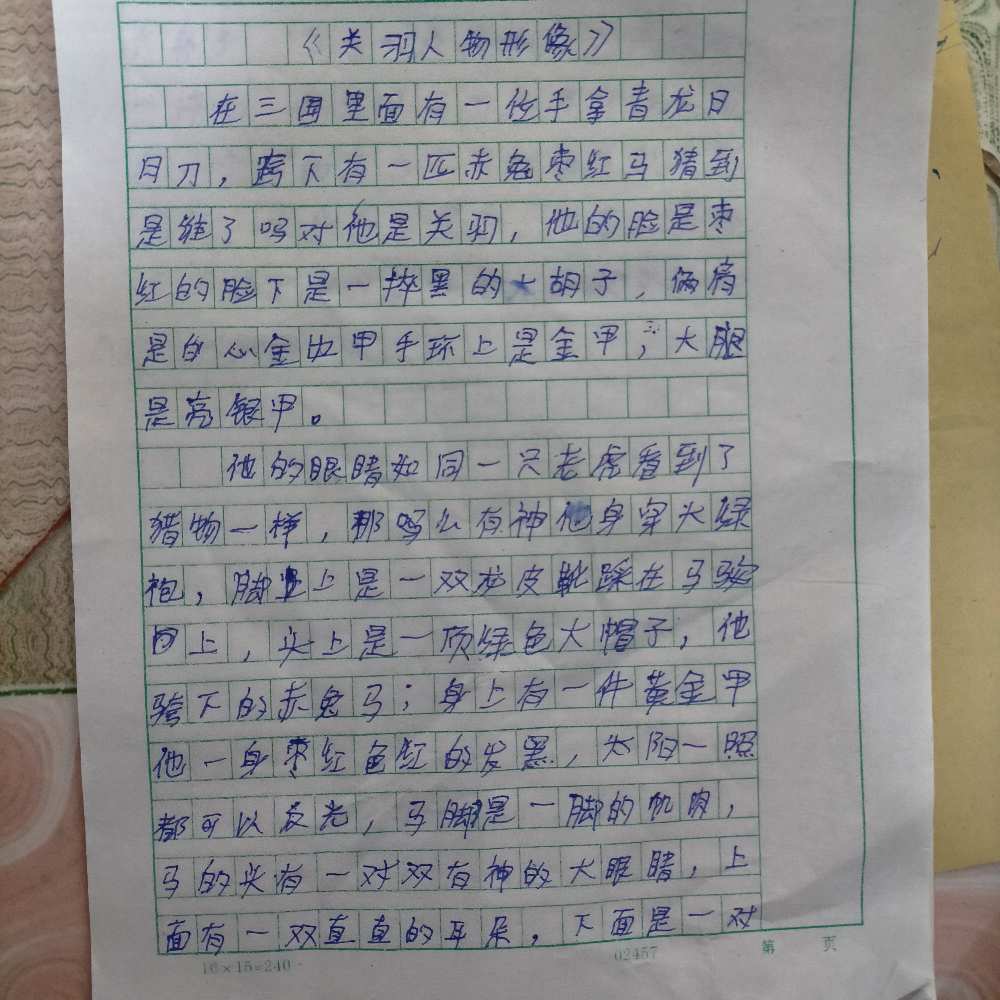 《关羽人物形像》
在三国里面有一位手拿青龙日
日刀，跨下有一匹赤兔枣红马猜到
是谁了吗对他是关羽，他的脸是枣
红的脸下是一捽黑的大胡子，俩肩
是的心金边甲手环上是金甲；大腿
是亮银甲。
他的眼睛如同一只老虎看到了
猎物一样，那吗么有神他身穿大绿
袍，脚上是一双龙皮靴踩在马
上，头上是一顶绿色大帽子，他
跨下的赤兔马；身上有一件黄金甲
他一身枣红色红的发黑，太阳一照
都可以反光，马脚是一脚的肌肉，
马的头有一对双有神的大眼睛，上
面有一双直直的耳朵，下面是一对
16×15=240
02457
第 页